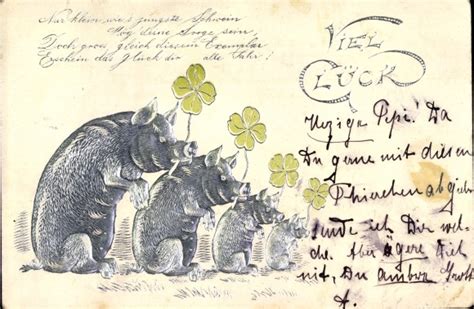 Nur klein, wie's jüngste Schwein
Mög deine Sorge sein,
Doch gross, gleich diesem Exemplar
Erschein das Glück dir alle Jahr!
VIEL
GLÜCK
Pepi! Da
Du gerne mit diesen
Thierchen
sende ich Dir wel-
che. Aber ägere Dich
nit, Du